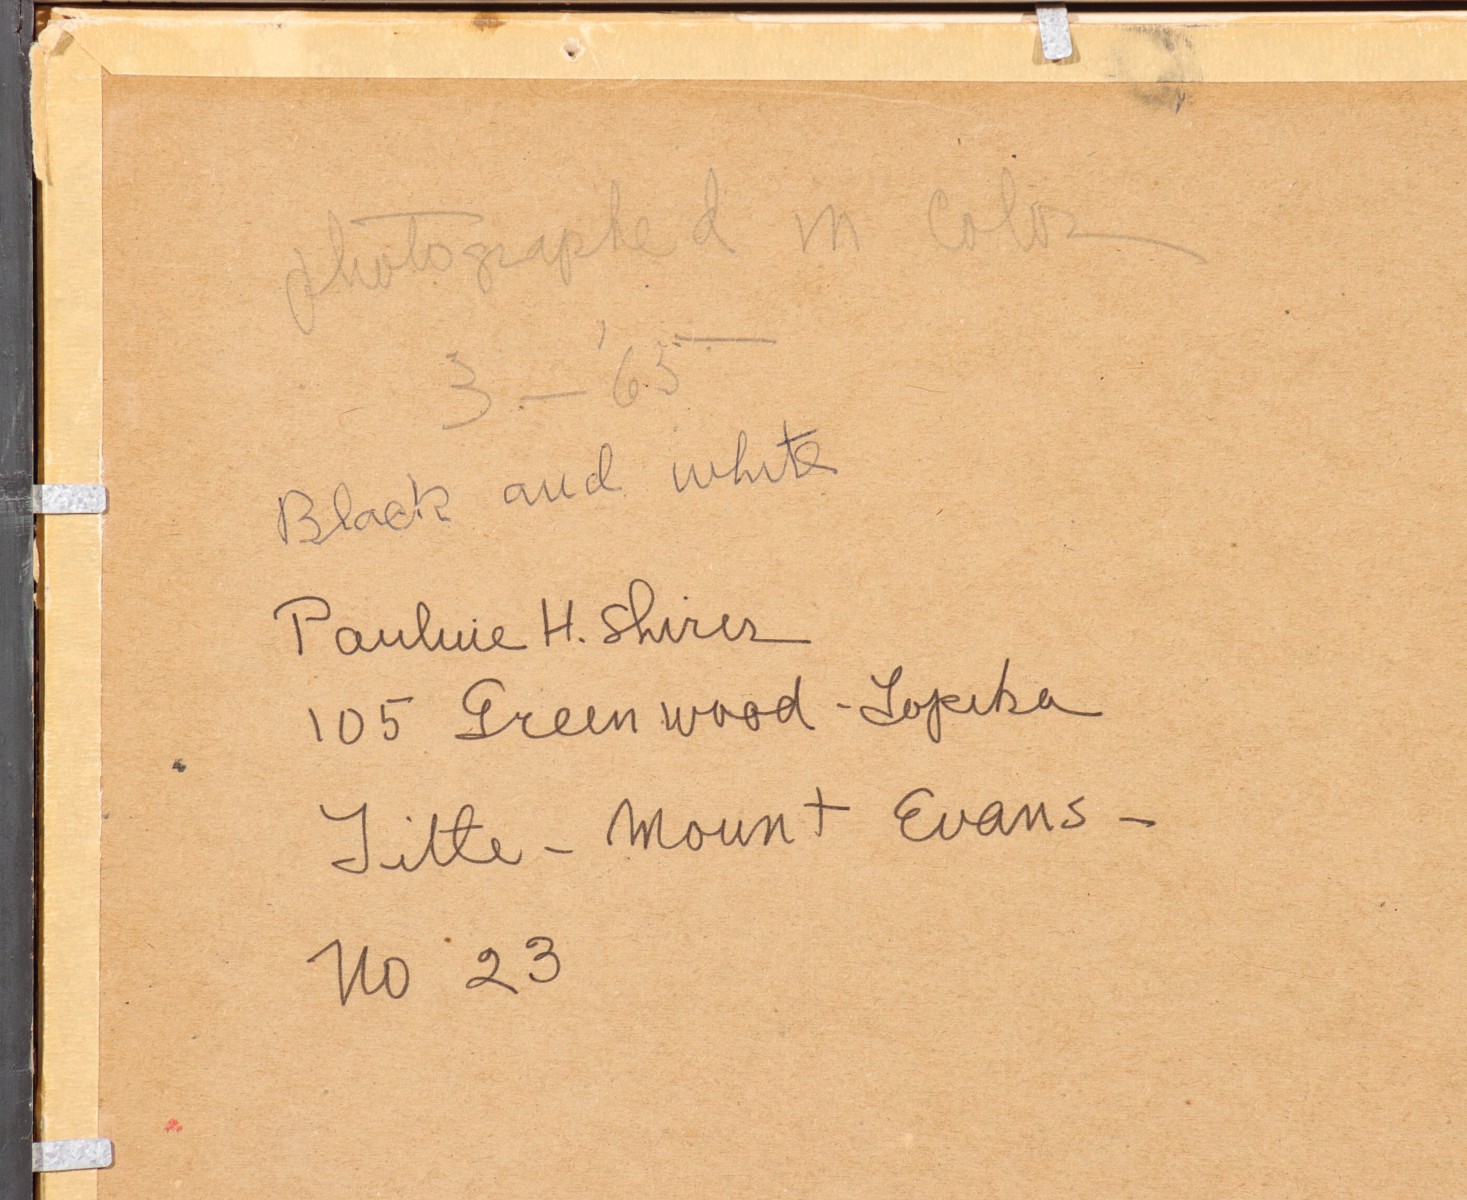 photographed in color
3 - '65
Black and white
Pauline H. Shirer
105 Greenwood - Topeka
Title - Mount Evans -
No 23